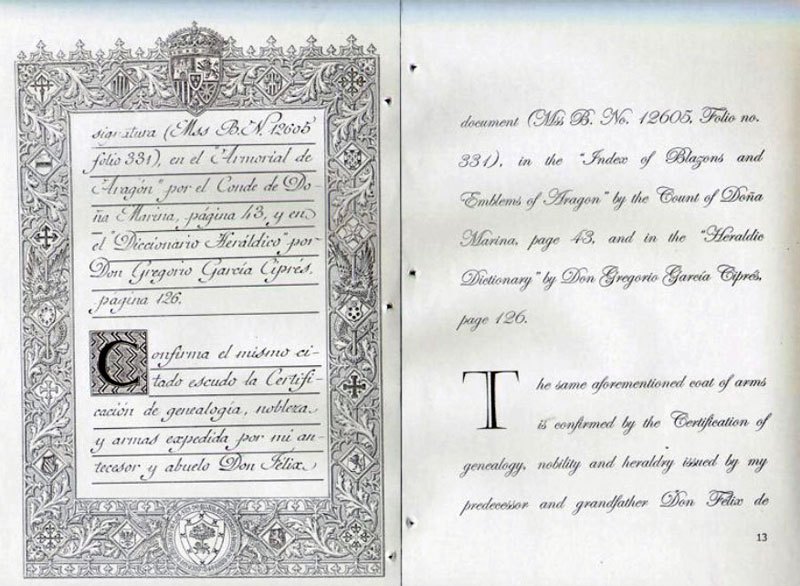 signatura (Mss B.N. 12605
folio 331), en el "Armorial de
Aragón" por el Conde de Do-
ña Marina, página 43, y en
el "Diccionario Heráldico" por
Don Gregorio García Ciprés,
página 126.
Confirma el mismo ci-
tado escudo la Certifi-
cación de genealogía, nobleza
y armas expedida por mi an-
tecesor y abuelo Don Félix
document (Mss B. No. 12605, Folio no.
331), in the "Index of Blazons and
Emblems of Aragon" by the Count of Doña
Marina, page 43, and in the "Heraldic
Dictionary" by Don Gregorio García Ciprés,
page 126.
The same aforementioned coat of arms
is confirmed by the Certification of
genealogy, nobility and heraldry issued by my
predecessor and grandfather Don Félix de
13